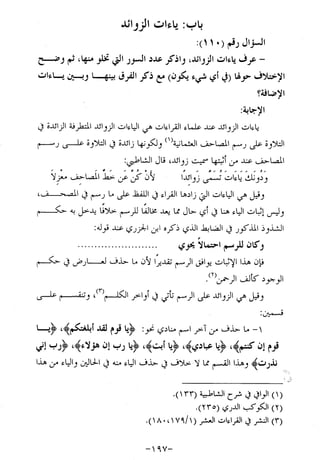 باب: ياءات الزوائد
السؤال رقم (١١٠):
– عرف ياءات الزوائد، واذكر عدد السور التي تخلو منها، ثم وضح
الاختلاف حولها (في أي شيء يكون) مع ذكر الفرق بينها وبين ياءات
الإضافة؟
الإجابة:
ياءات الزوائد عند علماء القراءات هي الياءات الزوائد المتطرفة الزائدة في
التلاوة على رسم المصاحف العثمانية(١) ولكونها زائدة في التلاوة على رسم
المصاحف عند من أثبتها سميت زوائد، قال الشاطبي:
ودونك ياءات تسمى زوائدا لأن كن عن خط المصاحف معزلا
وقيل هي الياءات التي زادها القراء في اللفظ على ما رسم في المصحف،
وليس إثبات الياء هنا في أي حال مما يعد مخالفا للرسم خلافا يدخل به حكم
الشذوذ المذكور في الضابط الذي ذكره ابن الجزري عند قوله:
وكان للرسم احتمالا يحوي ........................
فإن هذا الإثبات يوافق الرسم تقديرا لأن ما حذف لعارض في حكم
الوجود كألف الرحمن(٢).
وقيل هي الزوائد على الرسم تأتي في أواخر الكلم(٣)، وتنقسم على
قسمين:
١– ما حذف من آخر اسم منادي نحو: ﴿يا قوم لقد أبلغتكم﴾، ﴿يا
قوم إن كنتم﴾، ﴿يا عبادي﴾، ﴿يا أبت﴾، ﴿يا رب إن هؤلاء﴾، ﴿رب إني
نذرت﴾ وهذا القسم مما لا خلاف في حذف الياء منه في الحالين والياء من هذا
(١) الوافي في شرح الشاطبية (١٣٣).
(٢) الكوكب الدري (٢٣٥).
(٣) النشر في القراءات العشر (١٧٩/١، ١٨٠).
–١٩٧–